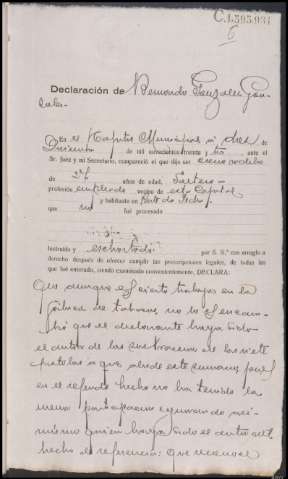 C.1.595.931
6
Declaración de Remondo González Gon-
zález
En el Capitol Municipal a diez de
de mil novecientos treinta y tres, ante el
Sr. Juez y mi Secretario, compareció el que dijo ser como arriba
de 27 años de edad, soltero
profesión empleado vecino de esta Capital
y habitante en
que no fué procesado
Instruido y exhortado por S. S.ª con arreglo a
derecho después de ofrecer cumplir las prescripciones legales, de todas las
que fué enterado, siendo examinado convenientemente, DECLARA:
Que aunque es cierto trabaja en la
fábrica de tabacos no lo es
que el declarante haya sido
el autor de la sustracción de las siete
a que alude este sumario pues
en el referido hecho no ha tenido la
menor participación ignorando así
mismo quien haya sido el autor del
hecho de referencia: que reconoce